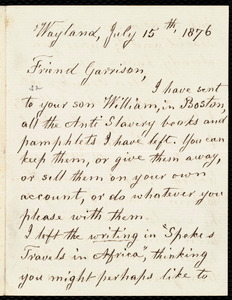 Wayland, July 15th, 1876
Friend Garrison,
I have sent
to your son William, in Boston,
all the Anti Slavery books and
pamphlets I have left. You can
keep them, or give them away,
or sell them on your own
account, or do whatever you
please with them.
I left the writing in "Speke's
Travels in Africa", thinking
you might perhaps like to